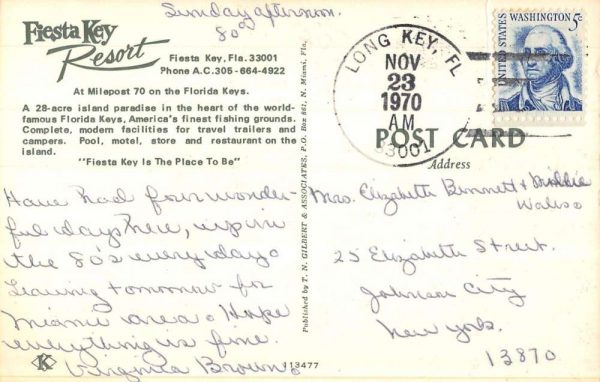 Sunday afternoon.
80°
Fiesta Key
Resort
Fiesta Key, Fla. 33001
Phone A.C. 305 - 664-4922
At Milepost 70 on the Florida Keys.
A 28-acre island paradise in the heart of the world-
famous Florida Keys, America's finest fishing grounds.
Complete, modern facilities for travel trailers and
campers. Pool, motel, store and restaurant on the
island.
"Fiesta Key Is The Place To Be"
Have had four wonder-
ful days here, up in
the 80's every day.
Leaving tomorrow for
Miami area. Hope
everything is fine.
Virginia Brown.
K
113477
Published by T. N. GILBERT & ASSOCIATES, P.O. Box 661, N. Miami, Fla.
LONG KEY, FL
NOV
23
1970
AM
33001
UNITED STATES
WASHINGTON 5c
POST CARD
Address
Mrs. Elizabeth Bunnett +
25 Elizabeth Street.
Johnson City
New York.
13870